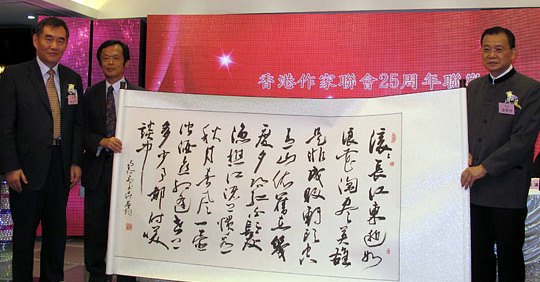 香港作家聯會25周年聯
滾滾長江東逝水
浪花淘盡英雄
是非成敗轉頭空
青山依舊在幾
度夕陽紅白髮
漁樵江渚上慣看
秋月春風一壺
濁酒喜相逢古今
多少事都付笑
談中